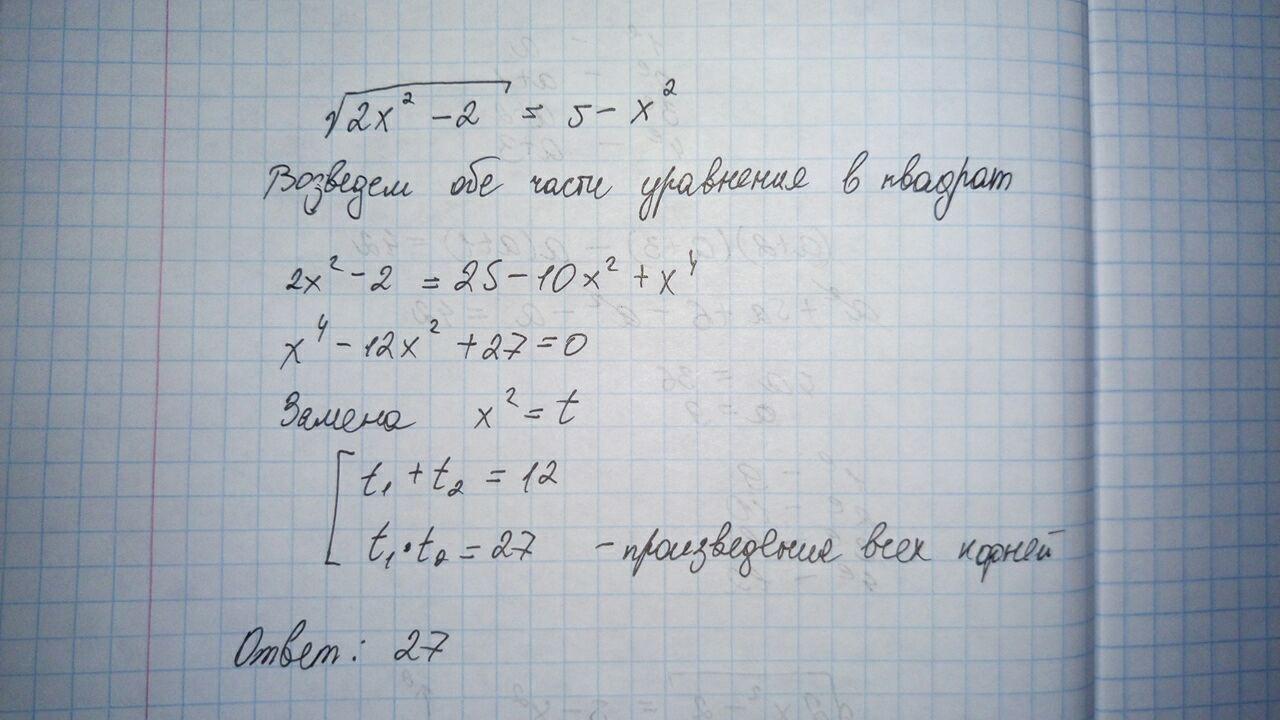 √(2x² - 2) = 5 - x²
Возведем обе части уравнения в квадрат
2x² - 2 = 25 - 10x² + x⁴
x⁴ - 12x² + 27 = 0
Замена x² = t
[ t₁ + t₂ = 12
t₁ · t₂ = 27 - произведение всех корней
Ответ: 27